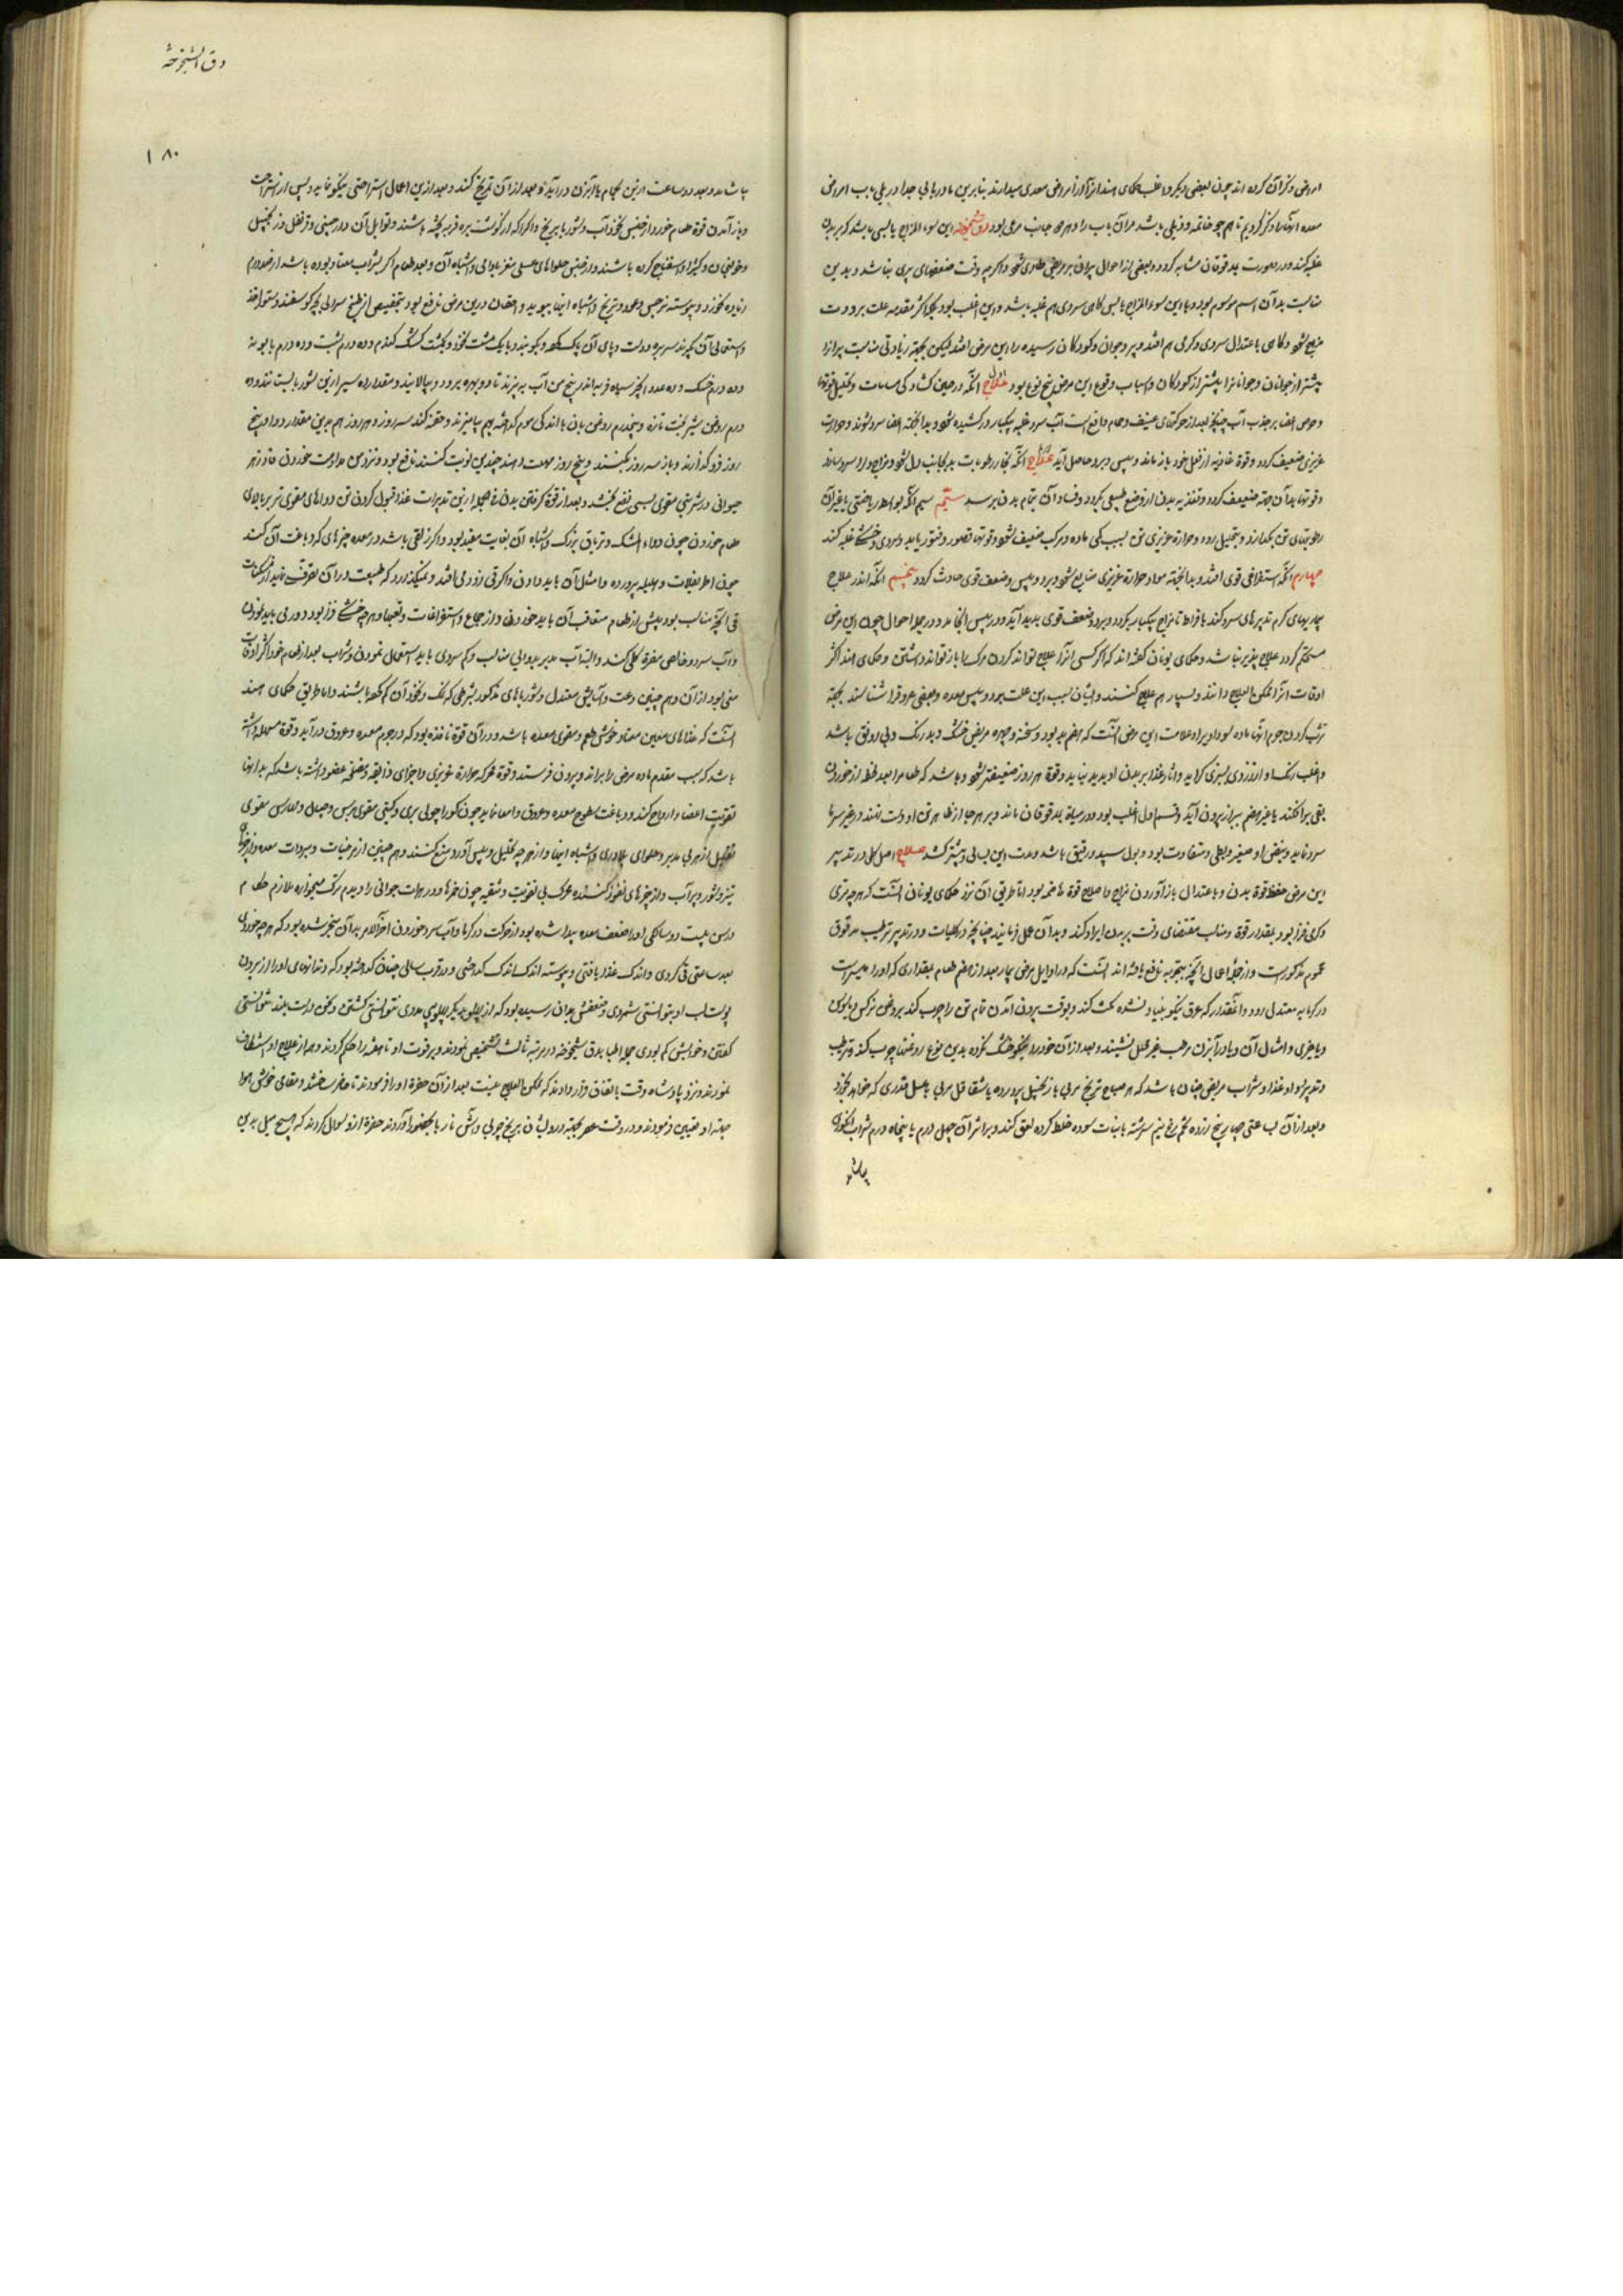 امراض ذکر آن کرده اند چون بعضی دیگر و اغلب حکمای هند آنرا از امراض معدی میدارند بنابرین ما در بابی جدا در یلی باب امراض
معده آنها را ذکر کردیم تا هم چو خاتمه و ذیلی باشد مر آن باب را و هر دو جانب مرعی بود دق شیخوخه این سوء المزاج یابسی باشد که بر بدن
غلبه کند و در صورت بدقوقان مشابه گردد و بعضی از احوال پیران بر مریض طاری شود و اگر چه وقت ضعفهای پیری نباشد و بدین
مناسبت بدان اسم موسوم بود و با این سوء المزاج یابس گاهی سردی هم غلبه باشد و این اغلب بود بلکه اکثر مقدمه علت برودت
مزاج شود و گاهی باعتدال سردی و گرمی هم افتد و پیر و جوان و کودکان رسیده را این مرض افتد لیکن بجهة زیادتی مناسبت پیرانرا
بیشتر از جوانان و جوانانرا بیشتر از کودکان و اسباب وقوع این مرض پنج نوع بود اول آنکه در حین گشادگی مسامات و تحلیل قوتها
و حرص اعضا بر جذب آب چنانچه بعد از حرکتهای عنیف و حمام واقع است آب سرد غلبه بیکبار در کشیده شود و بدانجهة اعضا سرد شوند و حرارت
غریزی ضعیف گردد و قوة غاذیه از فعل خود باز ماند و یبس و برد حاصل آید آنکه بخار رطوبات بد بجانب دل شود و مزاج ویرا سرد سازد
و قوتها بدآن جهة ضعیف گردد و تغذیه بدن از وضع طبیعی بگردد و فساد آن بتمام بدن برسد سیم آنکه بواسطه ریاضتی یا غیر آن
رطوبتهای تن بگدازد و بتحلیل رود و حرارة غریزی تن بسبب کمی ماده و مرکب ضعیف شود و قوتها قصور و فتور یابد و سردی و خشکی غلبه کند
چهارم آنکه استفراغی قوی افتد و بدانجهة مواد حرارة غریزی ضایع شود و برد و یبس و ضعف قوی حادث گردد پنجم آنکه اندر علاج
بیماریهای گرم تدبیرهای سرد کند بافراط تا مزاج بیکبار بگردد و برد و ضعف قوی پدید آید و در یبس انجامد و در جمله احوال چون این مرض
مستحکم گردد علاج پذیر نباشد و حکمای یونان گفته اند که اگر کسی آنرا علاج تواند کردن مرگ را باز تواند داشتن و حکمای هند اکثر
اوقات آنرا ممکن العلاج دانند و بسیار هم علاج کنند و ایشان سبب این علت برد و یبس معده و بعضی عروقرا شناسند بجهة
باشد و علامت این مرض آنست که هضم بد بود و سحنه و چهره مریض خشک و بد رنگ و بی رونق باشد
و اغلب رنگ او از زردی بسبزی گراید و آثار غذا بر بدن او پدید نیاید و قوة هر روز ضعیفتر شود و باشد که طعامرا بعد لحظه از خوردن
بقی بر افکند یا غیر هضم ببراز بیرون آید و قسم اول اغلب بود و در میانه بدقوقان ماند و بر هر جا از ظاهر تن او دست نهند در غیر سرما
سرد نماید و نبض او صغیر و بطی و متفاوت بود و بول سپید و رقیق باشد و مدت این بسالی و بیشتر کشد علاج اصل کلی در تدبیر
این مرض حفظ قوة بدن و باعتدال باز آوردن مزاج و اصلاح قوة هاضمه بود اما طریق آن نزد حکمای یونان آنست که هر چه تری
و گرمی فزا بود بقدار قوة و مناسب مقتضای وقت بر بدن ایراد کند و بدان عمل نمایند چنانچه در کلیات و در تدبیر ترطیب مدقوق
عموم مذکورست و از جمله اعمال آنچه بتجربه نافع یافته اند آنست که در اوایل مرض بیمار بعد از هضم طعام بمقداری که او را میسرست
در گرمابه معتدل رود و آنقدر که عرق نیکو بنیاد نشده مکث کند و بوقت بیرون آمدن تمام تن را چرب کند بروغن نرگس و بابونه
و یا خیری و امثال آن و یا در آبزن مرطب غیر محلل نشیند و بعد از آن خود را نیکو خشک کرده بدین نوع روغنها چرب کند و ترطیب
و تدبیر او و غذا و شراب مریض چنان باشد که هر صباح ترنج مربی یا زنجبیل پرورده یا شقاقل مربی با عسل قدری که خواهد بخورد
و بعد از آن بساعتی چهار پنج زرده تخم مرغ نیم برشته با نبات سوده خلط کرده لعق کند و بر اثر آن چهل درم یا پنجاه درم شراب انگوری
بیاشا
دق الشیخوخه
۱۸۰
بیاشامد و بعد دو ساعت ازین بحمام یا آبزن درآید و بعد از آن تمریخ کند و بعد ازین اعمال استراحتی نیکو نماید و پس از استراحت
و باز آمدن قوة طعام خورد از جنس نخودآب و شوربا ببرنج و اگر آنکه از گوشت بره فربه پخته باشند و توابل آن دارچینی و قرنفل و زنجبیل
و خولنجان و کبر و اسفناج کرده باشند و از جنس حلواهای عسلی مغز بادامی و اشباه آن و بعد طعام اگر بشراب معتاد بوده باشد از صد درم
زیاده نخورد و پیوسته نرجس و عود و ترنج و اشباه اینها ببوید و احتقان درین مرض نافع بود بتخصیص از طبخ سرابی بچه گوسفند و ستور اخذ
و استعمال آن بگیرند سر بره و دست و پای آن پاک کنند و بکوبند و با یک مشت نخود و یکمشت کشک گندم و ده درم شبت و ده درم بابونه
و ده درم خسک و ده عدد انجیر سپاه فربه اندر پنج من آب بپزند تا دو بهره برود و بپالایند و مقداری سیر ازین شوربا بیست نقدوده
درم روغن شیربخت تازه و پنجدرم روغن بان با اندکی موم گداخته بهم بیامیزند و حقنه کنند سه روز و هر روز هم بدین مقدار دوا و پنج
روز فرو گذارند و باز سه روز بکنند و پنج روز مهلت دهند چندین نوبت کنند نافع بود و نزد من مداومت خوردن فادزهر
حیوانی در شربتی مقوی بسی نفع بخشد و بعد از قوة گرفتن بدن فی الجمله ازین تدبیرات غذا قبول کردن تن دواهای مقوی تریر بالای
طعام خوردن چون دواء المشک و تریاق بزرگ و اشباه آن بغایت مفید بود و اگر زلقی باشد در معده چیزهای که دباغت آن کند
چون اطریفلات و هلیله پرورده و امثال آن باید دادن و اگر قی زود می افتد و نمیگذارد که طبیعت در آن تصرف نماید از مسکنات
قی آنچه مناسب بود پیش از طعام و متعاقب آن باید خوردن و از جماع و استفراغات و تعبها و هر چه خشکی فزا بود دوری باید نمودن
و آب سرد و خالص مضرة کلی کند و البته آب مدبر بدوایی مناسب و کم سردی باید استعمال نمودن و شراب بعد از طعام خود اکثر اوقات
مغنی بود از آن و هم چنین دعت و آسایش معتدل و شورباهای مذکور بشرطی که نمک و نخود آن کم باشند و اما طریق حکمای هند
آنست که غذاهای معین معتاد خوش طعم و مقوی معده باشد و در آن قوة نافذه بود که در جرم معده و عروق درآید و قوة مسهله داشته
باشد که سبب مقدم ماده مرض را براند و بیرون فرستد و قوة محرکه حرارة غریزی و اجزای ذایقه و عضو داشته باشد که بدانها
تقویت اعضا و ارواح کند و دباغت سطوح معده و عروق و امعا نماید چون
تعلیل از مربی مدبر و حلوای بلادری و اشباه اینها و از هر چه تحلیل و یبس آورد منع کنند و هم چنین از مرخیات و مبردات معده و از چیزهای
تیز و شور و پر آب و از چیزهای نفوذ کننده محرک بی تقویت و تنقیه چون خمرها و در هرات جوانی را دیدم ترک میخواره ملازم حکام
در سن بیست و دو سالگی او را ضعف معده پیدا شده بود از حرکت در گرما و آب سرد خوردن آخر الامر بدان منجر شده بود که هر چه خوردی
بعد ساعتی قی کردی و اندک غذا یافتی و پیوسته اندک اندک گداختی و در قرب سالی چنان گداخته بود که دندانهای او را از بیرون
پوست لب او بتوانستی شمردی و ضعفش بدان رسیده بود که از پهلو بدیگر پهلو بی مددی نتوانستی گشتن و سخن درست بلند نتوانستی
گفتن و خوابش کم بودی جمله اطبا بدق شیخوخه در مرتبه ثالث تشخیص نمودند و بر فوت او تا هفته را حکم کردند و همه از علاج او استنکاف
نمودند و نزد پادشاه وقت باتفاق قرار دادند که ممکن العلاج نیست بعد از آن حضرة او را فرمودند تا حاضر ساختند و مقامی خوش هوا
جهة او تعیین فرمودند و در وقت عصر بجهة درویشان برنج چوبی و آش نار با بحضور آوردند حضرة ازو سوال کردند که هیچ میل بدین